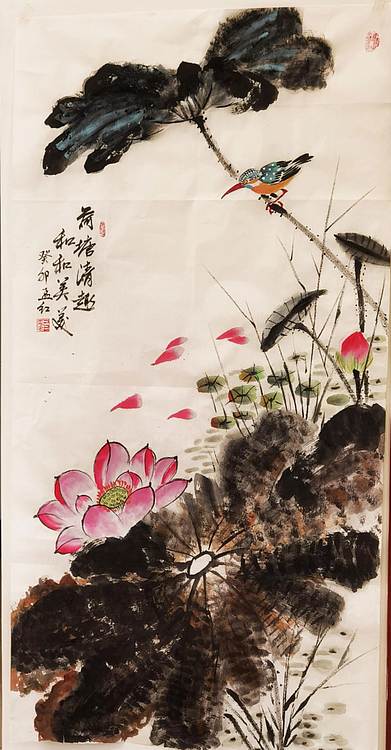 荷塘清趣
和和美美
癸卯孟红